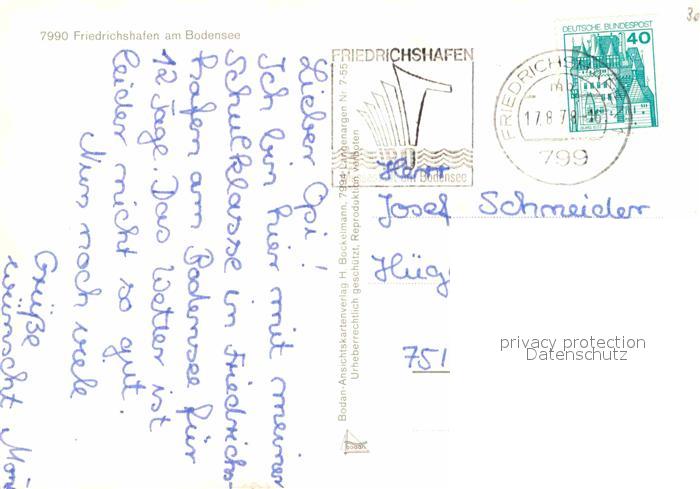 7990 Friedrichshafen am Bodensee
Lieber Opi!
Ich bin hier mit meiner
Schulklasse in Friedrichs-
hafen am Bodensee für
12 Tage. Das Wetter ist
leider nicht so gut.
Nun noch viele
Grüße
wünscht
Bodan-Ansichtskartenverlag H. Bockelmann, 7994 Langenargen Nr. 7-55
Urheberrechtlich geschützt, Reproduktion verboten
BODAN
FRIEDRICHSHAFEN
am Bodensee
FRIEDRICHSH
17.8.78-16
799
DEUTSCHE BUNDESPOST
40
Herrn
Josef Schneider
Hüg
751
privacy protection
Datenschutz